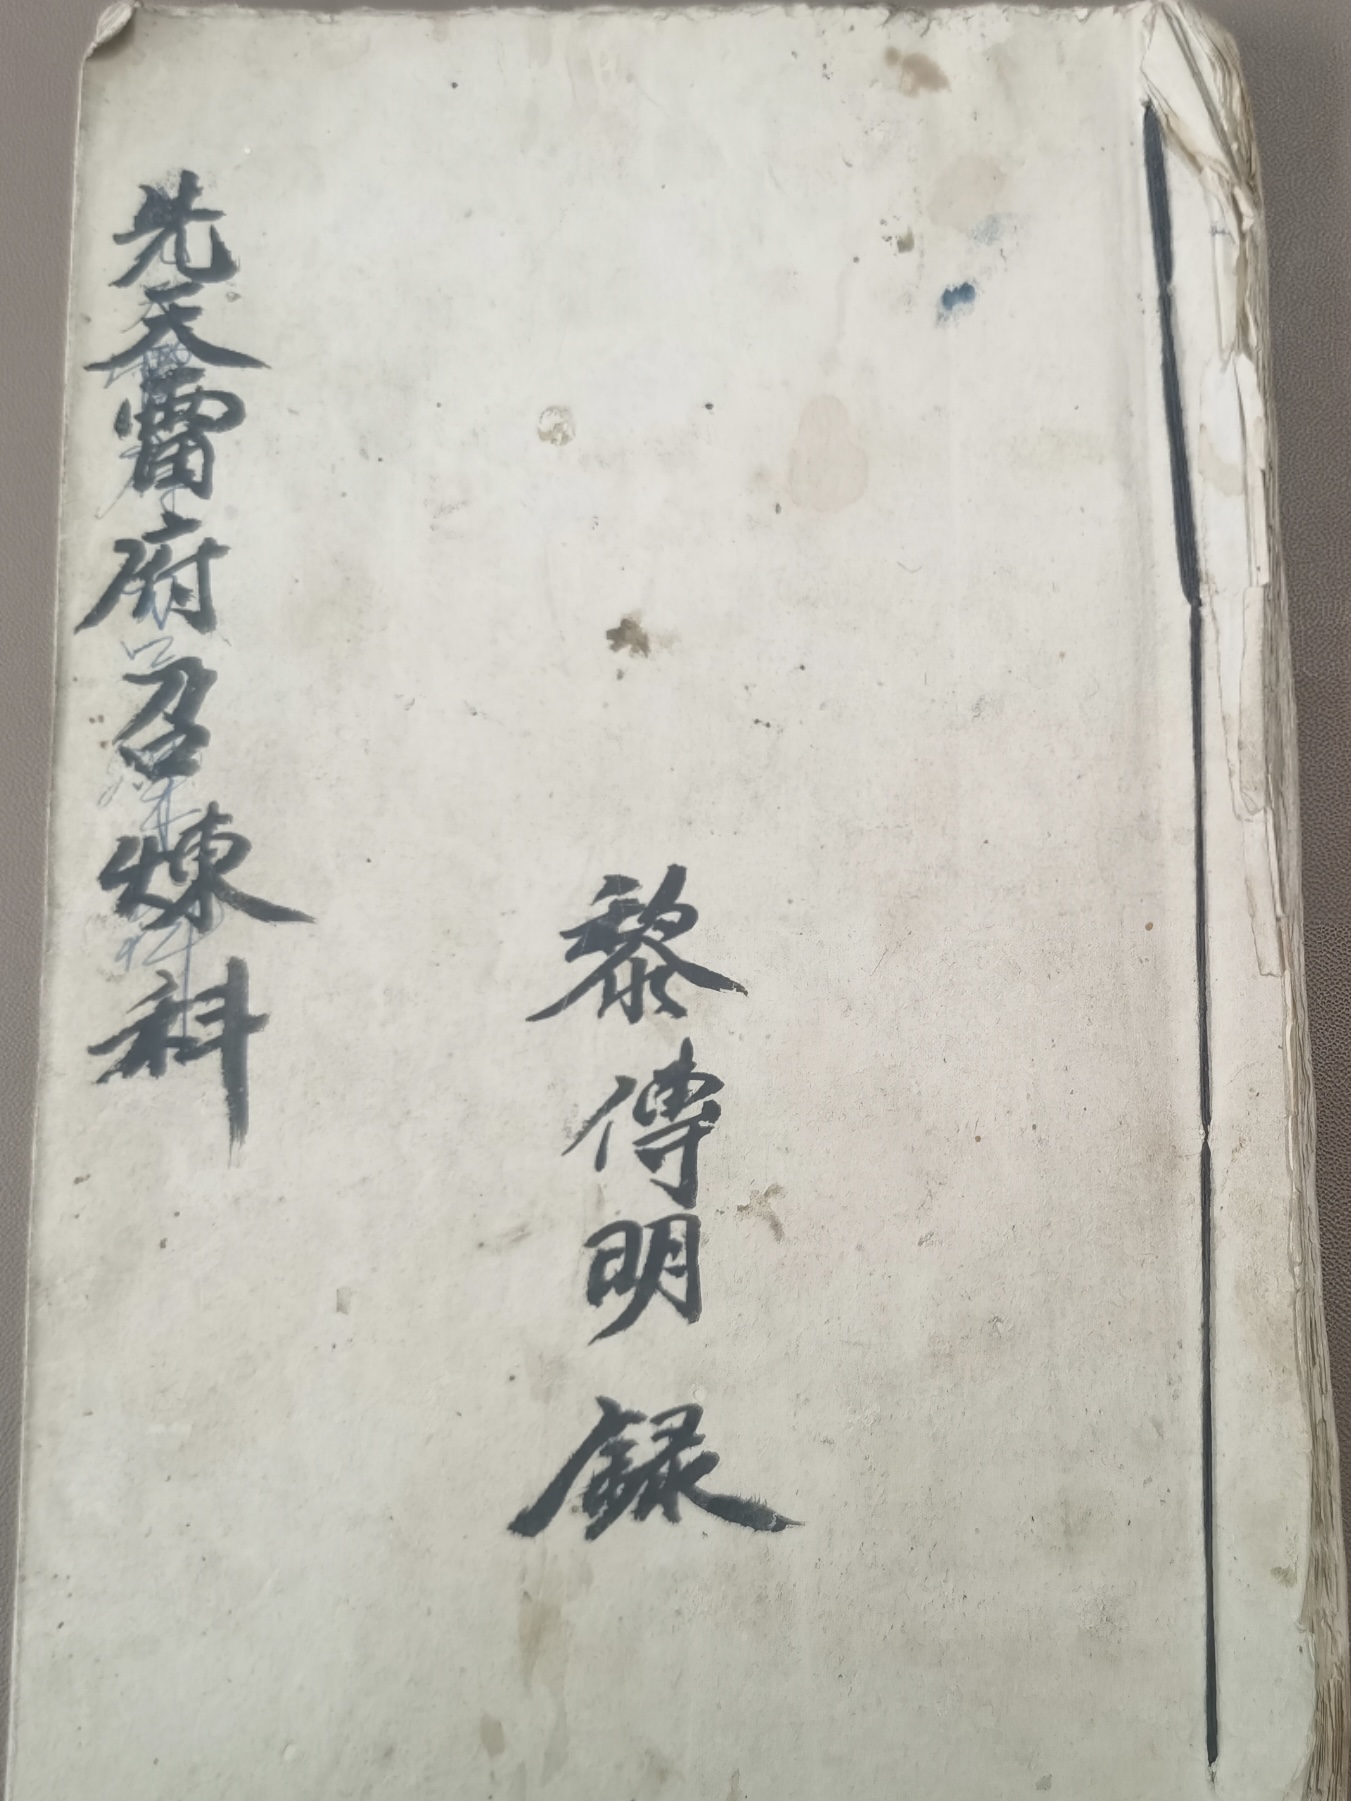 先天雷府召煉科
黎傳明錄